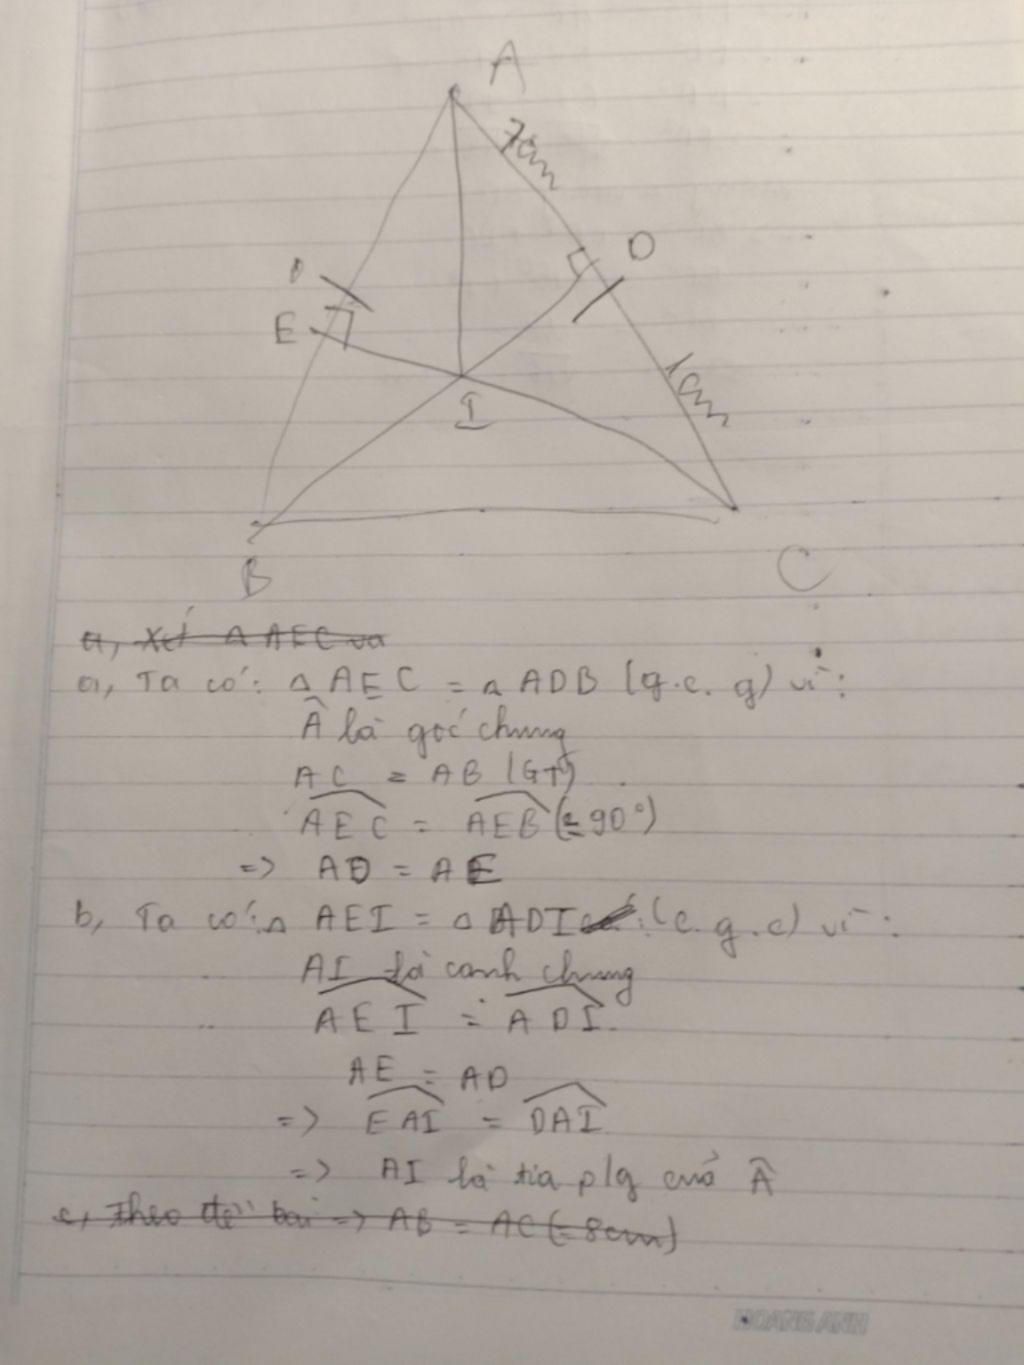 A
7cm
D
E
1cm
I
B
C
a, Xét Δ AEC và
a, Ta có: Δ AEC = Δ ADB (g.c.g) vì:
Â là góc chung
AC = AB (GT)
AEC = AEB (= 90°)
=> AD = AE
b, Ta có: Δ AEI = Δ ADI (c.g.c) vì:
AI là canh chung
AEI = ADI.
AE = AD
=> EAI = DAI
=> AI là tia p/g của Â
c, Theo đề bài => AB = AC (= 8cm)
HOANG ANH